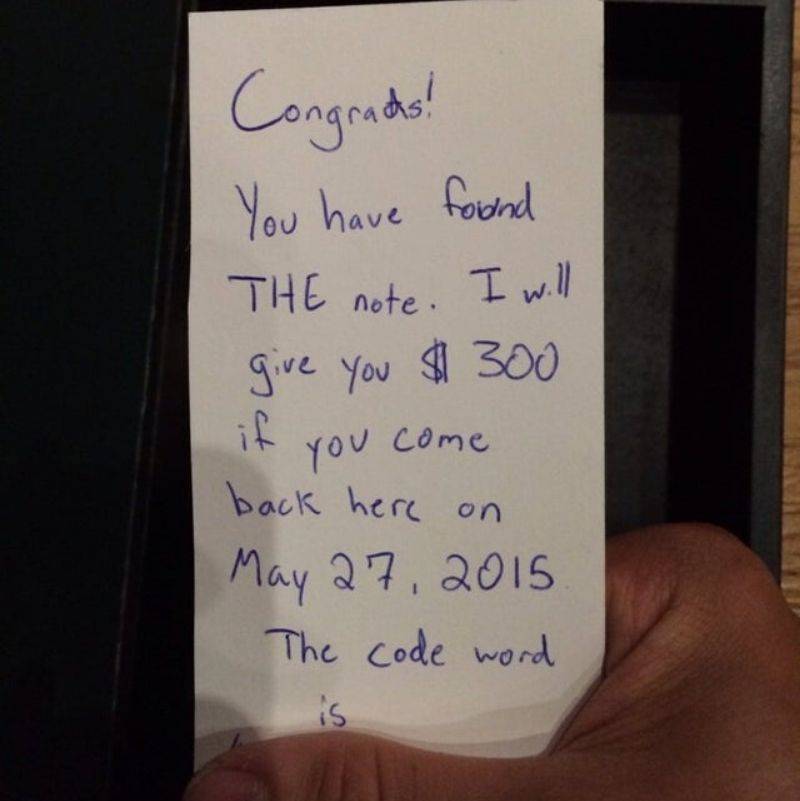 Congrats!
You have found
THE note. I will
give you $300
if you come
back here on
May 27, 2015
The code word
is